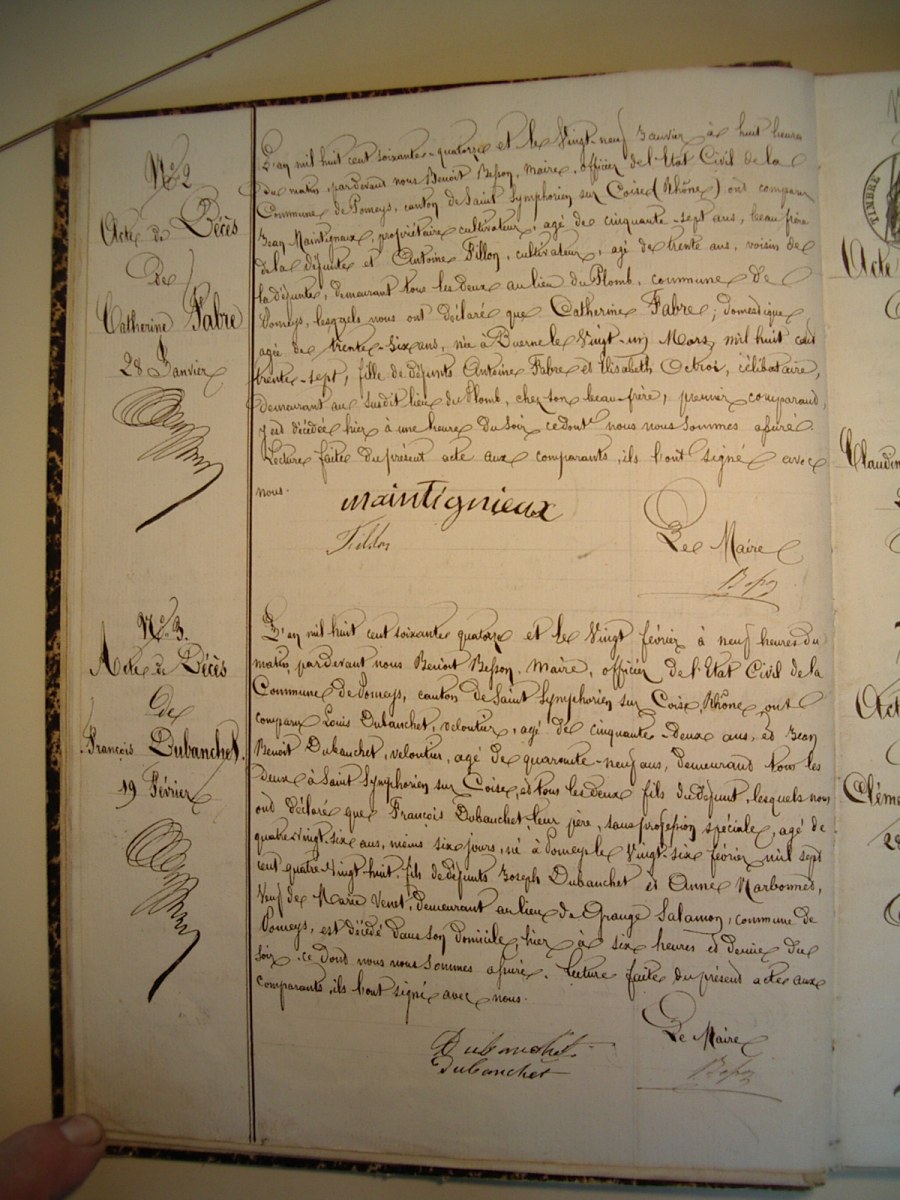 N° 2
Acte de Décès
De
Catherine Fabre
28 Janvier
L'an mil huit cent soixante-quatorze et le Vingt-neuf Janvier à huit heures
du matin, pardevant nous Benoit Besson, Maire, officier de l'Etat Civil de la
Commune de Pomeys, canton de Saint Symphorien sur Coise (Rhône) ont comparu
Jean Maintignaux, propriétaire cultivateur, agé de cinquante-sept ans, beau frère
de la défunte et Antoine Fillon, cultivateur, agé de trente ans, voisin de
la défunte, demeurant tous les deux au lieu du Plomb, commune de
Pomeys, lesquels nous ont déclaré que Catherine Fabre, domestique,
agée de trente-six ans, née à Duerne le Vingt-un Mars mil huit cent
trente-sept, fille de défunts Antoine Fabre et Elisabeth Octroi, célibataire,
demeurant au susdit lieu du Plomb, chez son beau-frère, premier comparant,
y est décédée hier à une heure du soir ce dont nous nous sommes assuré.
Lecture faite du présent acte aux comparants, ils l'ont signé avec
nous.
maintignieux
Fillon
Le Maire
Besson
N° 3.
Acte de Décès
De
François Dubanchet.
19 Février
L'an mil huit cent soixante quatorze et le Vingt février à neuf heures du
matin, pardevant nous Benoit Besson, Maire, officier de l'Etat Civil de la
Commune de Pomeys, canton de Saint Symphorien sur Coise, Rhône, ont
comparu Louis Dubanchet, veloutier, agé de cinquante-deux ans, et Jean
Benoit Dubanchet, veloutier, agé de quarante-neuf ans, demeurand tous les
deux à Saint Symphorien sur Coise, et tous les deux fils du défunt, lesquels nous
ont déclaré que François Dubanchet leur père, sans profession spéciale, agé de
quatre-vingt-six ans, moins six jours, né à Pomeys le Vingt-six février mil sept
cent quatre-vingt-huit, fils de défunts Joseph Dubanchet et Anne Narbonnes,
Veuf de Marie Venet, demeurant au lieu de Grange Salamon, commune de
Pomeys, est décédé dans son domicile, hier à six heures et demie du
soir, ce dont nous nous sommes assuré. Lecture faite du présent acte aux
comparants, ils l'ont signé avec nous.
Dubanchet
Dubanchet
Le Maire
Besson
TIMBRE
Acte
Claudin
Act
Cléme